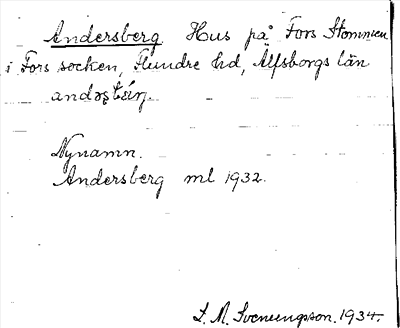 Andersberg Hus på Fors Stommen
i Fors socken, Flundre hd, Älfsborgs län
Nynamn.
Andersberg ml 1932.
S. M. Svenungsson. 1934.